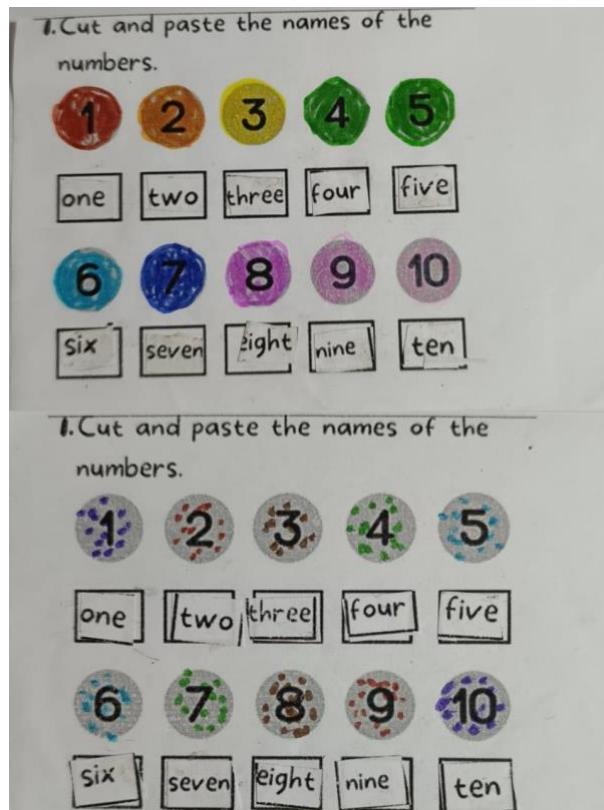 1. Cut and paste the names of the
numbers.
1 2 3 4 5
one two three four five
6 7 8 9 10
six seven eight nine ten
1. Cut and paste the names of the
numbers.
1 2 3 4 5
one two three four five
6 7 8 9 10
six seven eight nine ten